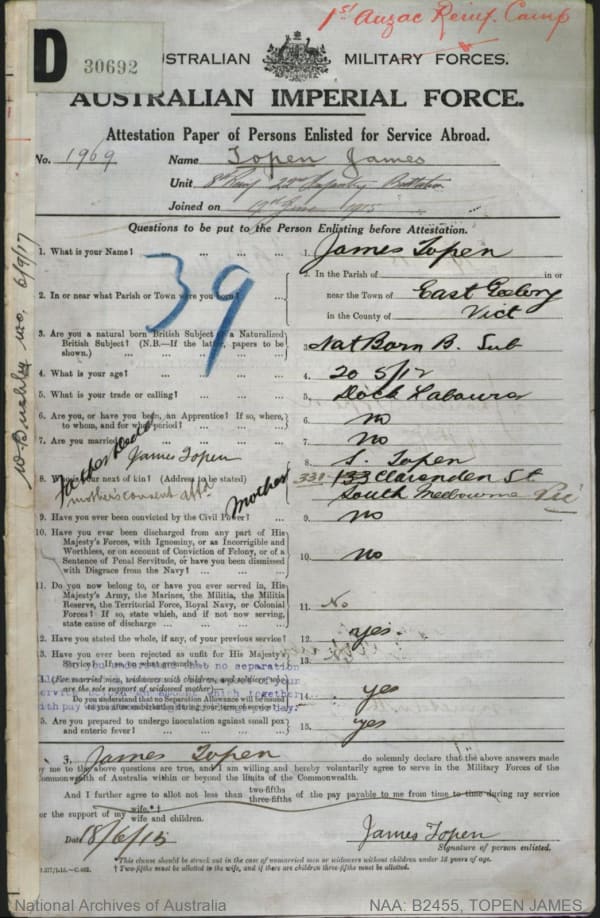 1st Anzac Reinf. Camp
D
30692
AUSTRALIAN MILITARY FORCES.
AUSTRALIAN IMPERIAL FORCE.
Attestation Paper of Persons Enlisted for Service Abroad.
No. 1969 Name Topen James
Unit 8th Reinf 22nd Infantry Battalion
Joined on 19th June 1915
Questions to be put to the Person Enlisting before Attestation.
1. What is your Name? ... ... ... 1. James Topen
2. In or near what Parish or Town were you born? ... 2. In the Parish of in or
near the Town of East Geelong
in the County of Vict
3. Are you a natural born British Subject or a Naturalized
British Subject? (N.B.—If the latter, papers to be
shown.) ... 3. Nat Born B. Sub
4. What is your age? ... ... ... 4. 20 5/12
5. What is your trade or calling? ... ... 5. Dock Labourer
6. Are you, or have you been, an Apprentice? If so, where,
to whom, and for what period? ... ... 6. no
7. Are you married? 7. no
James Topen
Father Dead
8. Who is your next of kin? (Address to be stated) 8. S. Topen
mother's consent attd
mother
339 133 Clarenden St
South Melbourne Vic
9. Have you ever been convicted by the Civil Power? ... 9. no
10. Have you ever been discharged from any part of His
Majesty's Forces, with Ignominy, or as Incorrigible and
Worthless, or on account of Conviction of Felony, or of a
Sentence of Penal Servitude, or have you been dismissed
with Disgrace from the Navy? ... ... 10. no
11. Do you now belong to, or have you ever served in, His
Majesty's Army, the Marines, the Militia, the Militia
Reserve, the Territorial Force, Royal Navy, or Colonial
Forces? If so, state which, and if not now serving,
state cause of discharge ... ... 11. No
2. Have you stated the whole, if any, of your previous service? 12. yes.
3. Have you ever been rejected as unfit for His Majesty's
Service? If so, on what grounds? 13.
4. (For married men, widowers with children, and soldiers who
are the sole support of widowed mother)—
Do you understand that no Separation Allowance will be issued
to you after embarkation during your term of service? 14. yes
5. Are you prepared to undergo inoculation against small pox
and enteric fever? ... ... 15. yes
39
6/9/17
I, James Topen do solemnly declare that the above answers made
by me to the above questions are true, and I am willing and hereby voluntarily agree to serve in the Military Forces of the
Commonwealth of Australia within or beyond the limits of the Commonwealth.
And I further agree to allot not less than two-fifths three-fifths of the pay payable to me from time to time during my service
for the support of my wife.*†
wife and children.
Date 18/6/15 James Topen
Signature of person enlisted.
*This clause should be struck out in the case of unmarried men or widowers without children under 18 years of age.
† Two-fifths must be allotted to the wife, and if there are children three-fifths must be allotted.
National Archives of Australia NAA: B2455, TOPEN JAMES